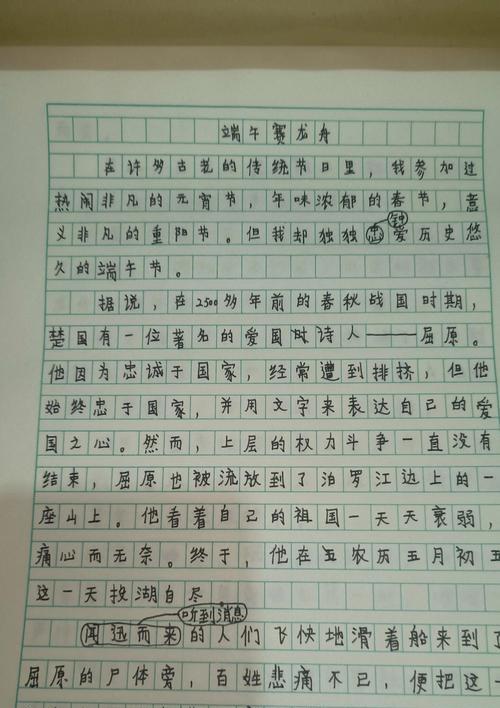 端午赛龙舟
在许多古老的传统节日里，我参加过
热闹非凡的元宵节，年味浓郁的春节，意
钟
义非凡的重阳节。但我却独独忠爱历史悠
久的端午节。
据说，在2500多年前的春秋战国时期，
楚国有一位著名的爱国时诗人——屈原。
他因为忠诚于国家，经常遭到排挤，但他
始终忠于国家，并用文字来表达自己的爱
国之心。然而，上层的权力斗争一直没有
结束，屈原也被流放到了泊罗江边上的一
座山上。他看着自己的祖国一天天衰弱，
痛心而无奈。终于，他在五农历五月初五
这一天投湖自尽
听到消息
闻迅而来的人们飞快地滑着船来到了
屈原的尸体旁，百姓悲痛不已，便把这一